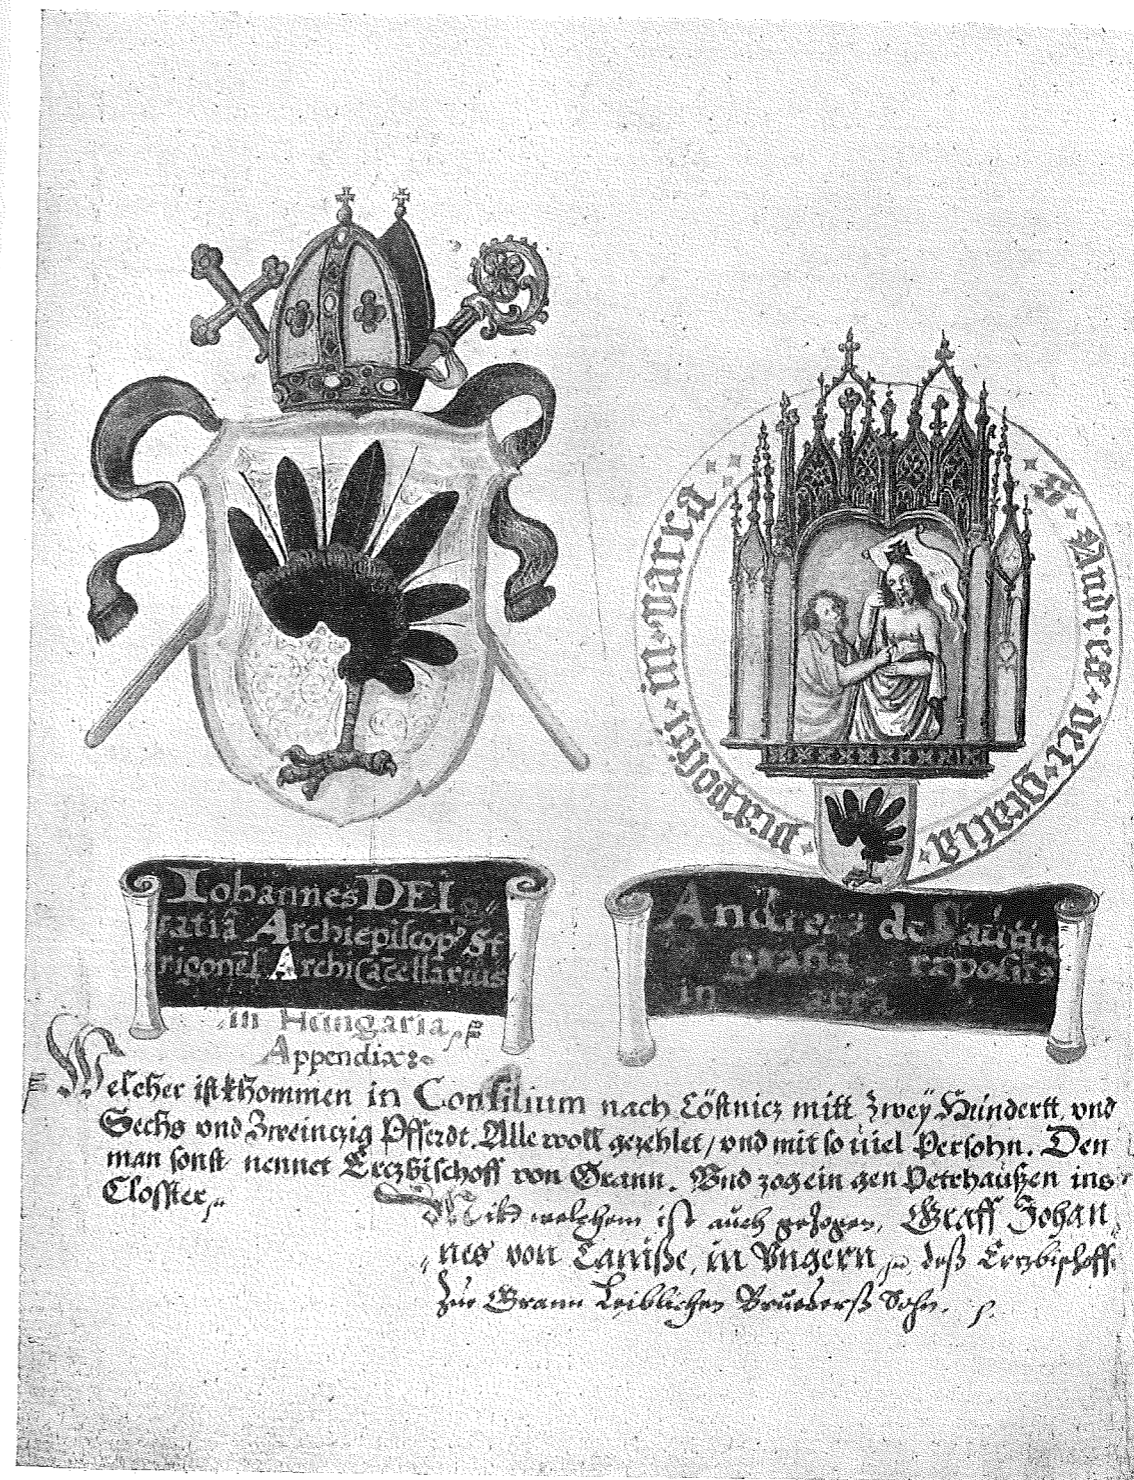 Iohannes DEI
ratiã Archiepiscop9 St
rigoneñ. ArchiCãcellarius
in Hungaria
Appendix:
S · Andree · dei · gratia · prapositi · in · varca
Andreas de
gratia praposit9
in
Welcher ist khommen in Consilium nach Cöstnicz mitt Zweÿ Hundertt, vnd
Sechs vnd Zweinczig Pfferdt. Alle woll gezehlet / vnd mit so üiel Persohn. Den
man sonst nennet Erczbischoff von Grann. Vnd zog ein gen Petrhaußen ins
Closster
Mitt welchem ist auch gezogen, Graff Johan
nes von Canisße, in Vngern, deß Erczbischoffs
Zue Grann Leiblichen Bruederß Sohn.